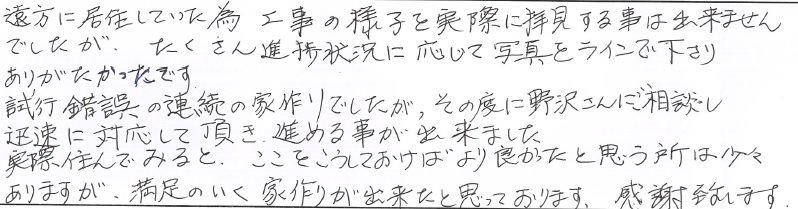 遠方に居住していた為 工事の様子を実際に拝見する事は出来ません
でしたが、たくさん進捗状況に応じて写真をラインで下さり
ありがたかったです
試行錯誤の連続の家作りでしたが、その度に野沢さんにご相談し
迅速に対応して頂き 進める事が出来ました
実際住んでみると、ここをこうしておけばより良かったと思う所は少々
ありますが、満足のいく家作りが出来たと思っております。感謝致します。